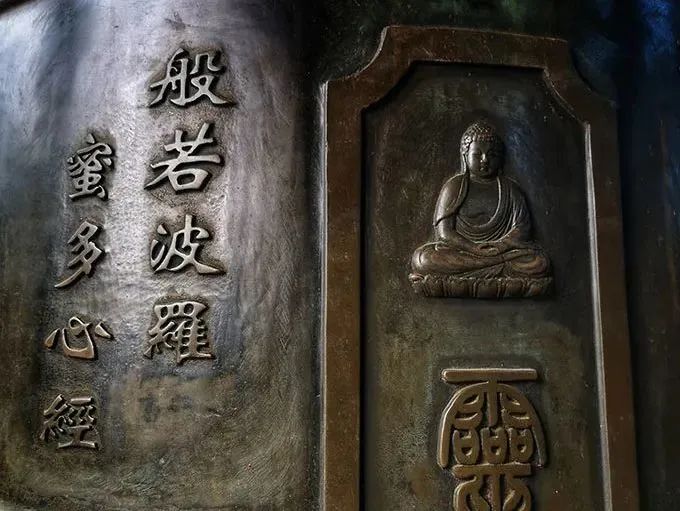 般若波羅
蜜多心經
靈